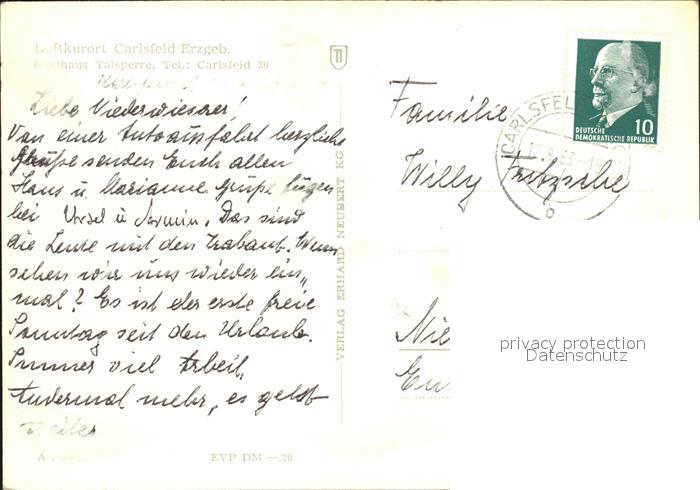 Luftkurort Carlsfeld/Erzgeb.
Gasthaus Talsperre, Tel.: Carlsfeld 30
Liebe Niederwieser!
Von einer Autoausfahrt herzliche
Grüße senden Euch allen
Hans u. Marianne Grüße fügen
bei Ursel u. Armin. Das sind
die Leute mit den Trabant. Wann
sehen wir uns wieder ein„
mal? Es ist der erste freie
Sonntag seit den Urlaub.
Immer viel Arbeit,
Andermal mehr, es geht
weiter.
EVP DM —.20
VERLAG ERHARD NEUBERT KG
CARLSFEL
b
DEUTSCHE
DEMOKRATISCHE REPUBLIK
10
Familie
Willy Fritzsche
Nie
privacy protection
Datenschutz